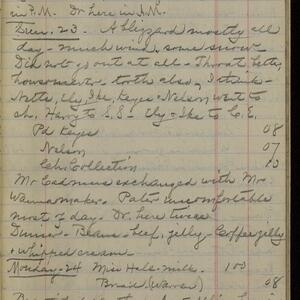 in P.M. Dr. here in P.M.
Dec. 23. A blizzard mostly all
day - much wind, some snow.
Did not go out at all - Throat betty
however - tooth also, I think -
Netts, Ily, Ike, Keyes + Nelson went to
ch. Harry to S.S - Ily + Ike to C.E.
Pd Keyes 08
Nelson 07
Ch. Collection 10
Mr Cadmus exchanged with Mr.
Wannamaker. Pater uncomfortable
most of day. Dr. here twice
Dinner - Beans - beef, jelly - Coffee jelly
+ whipped cream.
Monday - 24 Miss Hale - milk. 1 00
Braid (Warren) 08